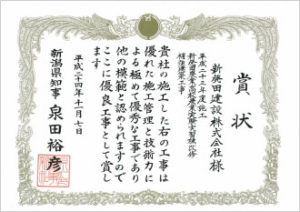 賞状
新発田建設株式会社様
平成二十三年度施工
貴社の施工した右の工事は
優れた施工管理と技術力に
よる極めて優秀な工事であり
他の模範と認められますので
ここに優良工事として賞し
ます
平成二十四年十一月七日
新潟県知事 泉田裕彦